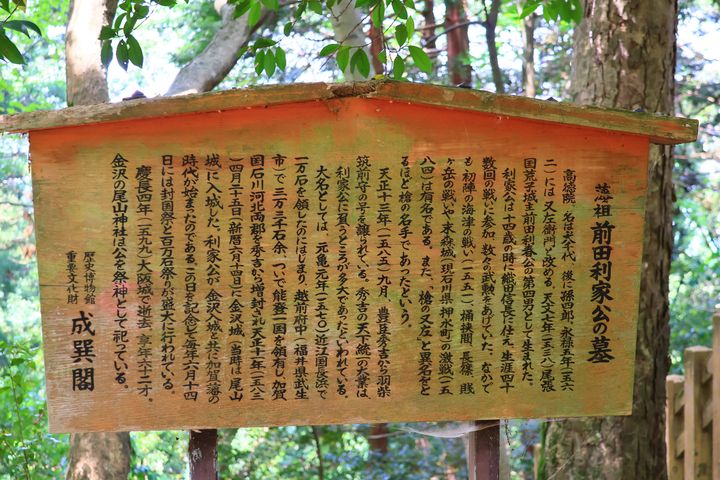 藩祖 前田利家公の墓
高徳院、名は犬千代、後に孫四郎、永禄五年(一五六
二)には又左衛門と改める。天文七年(一五三八)尾張
国荒子城主前田利春公の第四男として生まれた。
利家公は十四歳の時に織田信長に仕え、生涯四十
数回の戦いに参加、数々の武勲をあげていた。なかで
も初陣の海津の戦い(一五五一)、桶狭間、長篠、賤
ヶ岳の戦いや、末森城(現石川県押水町)の激戦(一五
八四)は有名である。また、「槍の又左」と異名をと
るほど槍の名手であったという。
天正十三年(一五八五)九月、豊臣秀吉から羽柴
筑前守の字を譲られている。秀吉の天下統一の業は、
利家公に負うところが多大であったといわれている。
大名としては、元亀元年(一五七〇)近江国長浜で
一万石を領したのにはじまり、越前府中(福井県武生
市)で三万三千石余、ついで能登一国を領有し、加賀
国石川河北両郡を秀吉から増封され天正十一年(一五八三
)四月二十五日(新暦六月十四日)に金沢城(当時は尾山
城)に入城した。利家公が金沢入城と共に加賀藩の
時代が始まったのである。この日を記念して毎年六月十四
日には封国祭と百万石祭りが盛大に行われている。
慶長四年(一五九九)大阪城で逝去、享年六十二才。
金沢の尾山神社は公を祭神として祀っている。
歴史博物館
重要文化財 成巽閣